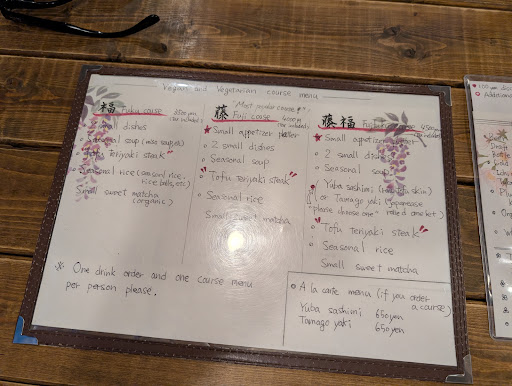 Vegan and Vegetarian course menu
福 Fuku couse 3500yen
(tax included)
small dishes
seasonal soup (miso soup, etc)
Tofu Teriyaki steak
Seasonal rice (on soni rice,
rice balls, etc)
Small sweet matcha
(organic)
"Most popular course!"
藤 Fuji couse 4000yen
(tax included)
★ Small appetizer platter
2 small dishes
Seasonal soup
"Tofu teriyaki steak"
Seasonal rice
Small sweet matcha
藤福
★ Small appetizer
2 small dishes
Seasonal soup
Yuba sashimi (tofu skin)
or Tamago yaki (Japanese
"please choose one" rolled omelet)
"Tofu teriyaki steak"
Seasonal rice
Small sweet matcha
※ One drink order and one course menu
per person please.
A la carte menu (if you order
a course)
Yuba sashimi 660yen
Tamago yaki 650yen
100 yen
Additiona